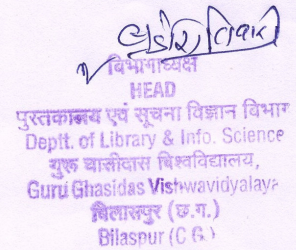 विभागाध्यक्ष
HEAD
पुस्तकालय एवं सूचना विज्ञान विभाग
Deptt. of Library & Info. Science
गुरू घासीदास विश्वविद्यालय,
Guru Ghasidas Vishwavidyalaya
बिलासपुर (छ.ग.)
Bilaspur (C.G.)